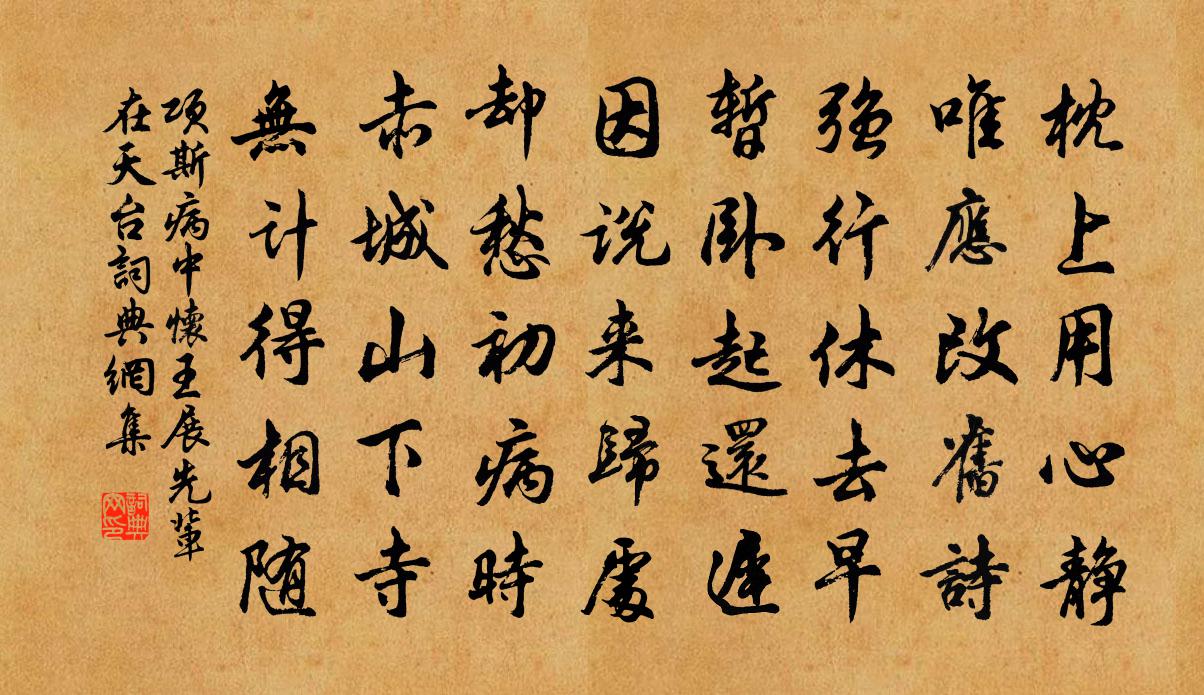 枕上用心静
唯應改舊詩
强行休去早
暫卧起還遲
因説来歸處
却愁初病時
赤城山下寺
無計得相随
項斯病中懷王展先輩
在天台詞典網集
詞典
网印